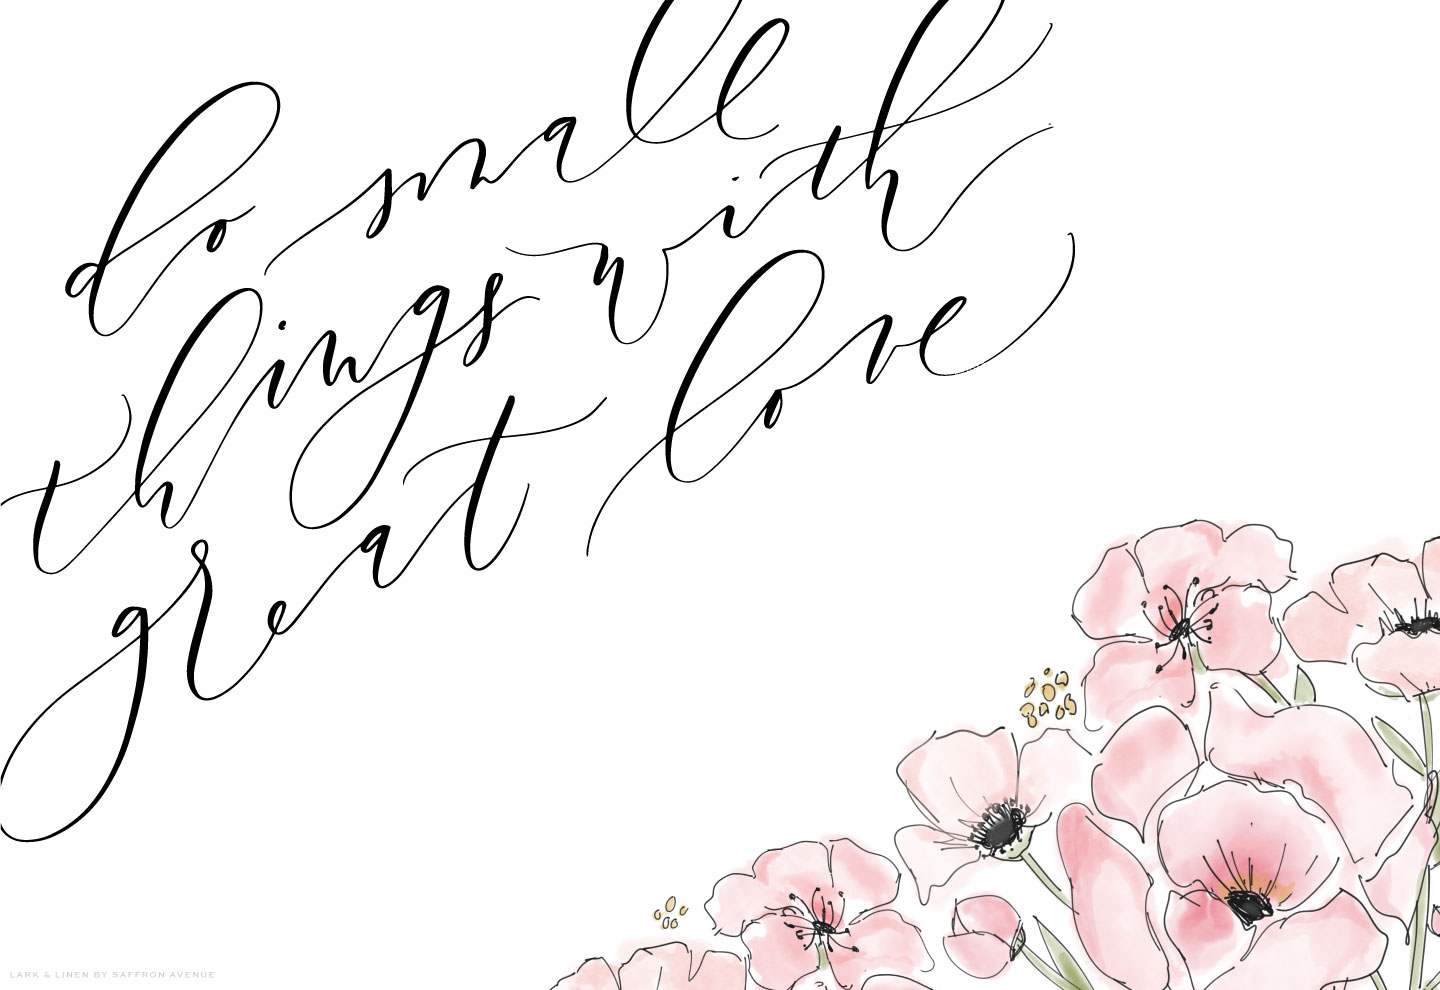 do small
things with
great love
LARK & LINEN BY SAFFRON AVENUE